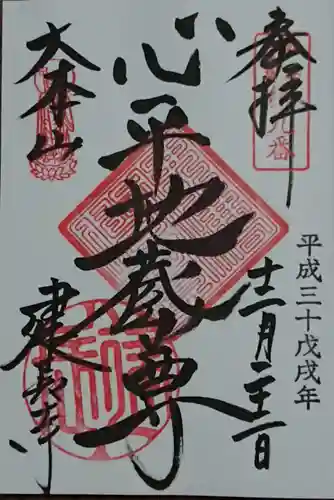 奉拝
平成三十戊戌年
十一月二十三日
心平地蔵尊
大本山
建長寺